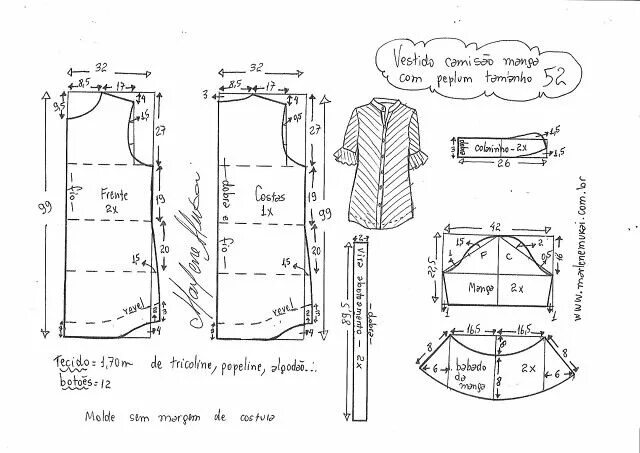 Vestido camisão manga
com peplum tamanho 52
32
8,5
17
9,5
4
1,5
27
99
fio
Frente
2x
19
20
1,5
revel
3
4
2
32
8,5
17
3
4
0,5
27
dobra e fio
Costas
1x
19
99
20
1,5
revel
3
4
2
Marlene Mukai
2
Vira abotoamento - 2x
dobra
89,5
3
dobra
colarinho - 2x
1,5
1,5
26
www.marlenemukai.com.br
42
1,5
F
C
2
1
0,5
16
Manga 2x
1
1
16,5
16,5
8
8
8
8
6
babado
da
manga
2x
6
Tecido = 1,70m de tricoline, popeline, algodão...
botões = 12
Molde sem margem de costura